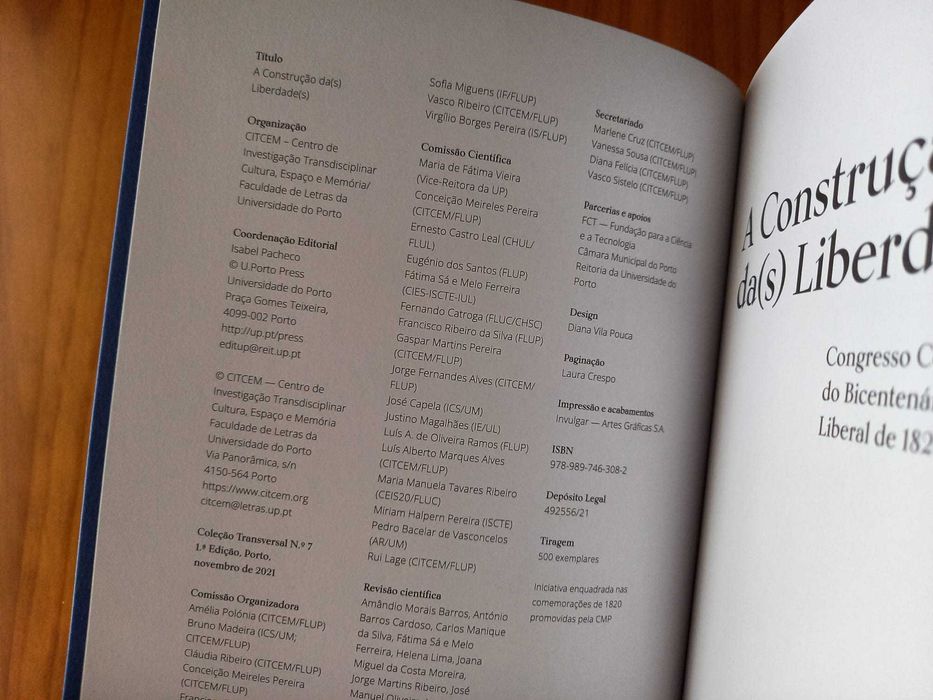 Título
A Construção da(s)
Liberdade(s)
Organização
CITCEM – Centro de
Investigação Transdisciplinar
Cultura, Espaço e Memória/
Faculdade de Letras da
Universidade do Porto
Coordenação Editorial
Isabel Pacheco
© U.Porto Press
Universidade do Porto
Praça Gomes Teixeira,
4099-002 Porto
http://up.pt/press
editup@reit.up.pt
© CITCEM — Centro de
Investigação Transdisciplinar
Cultura, Espaço e Memória
Faculdade de Letras da
Universidade do Porto
Via Panorâmica, s/n
4150-564 Porto
https://www.citcem.org
citcem@letras.up.pt
Coleção Transversal N.º 7
1.ª Edição, Porto,
novembro de 2021
Comissão Organizadora
Amélia Polónia (CITCEM/FLUP)
Bruno Madeira (ICS/UM;
CITCEM/FLUP)
Cláudia Ribeiro (CITCEM/FLUP)
Conceição Meireles Pereira
(CITCEM/FLUP)
Sofia Miguens (IF/FLUP)
Vasco Ribeiro (CITCEM/FLUP)
Virgílio Borges Pereira (IS/FLUP)
Comissão Científica
Maria de Fátima Vieira
(Vice-Reitora da UP)
Conceição Meireles Pereira
(CITCEM/FLUP)
Ernesto Castro Leal (CHUL/
FLUL)
Eugénio dos Santos (FLUP)
Fátima Sá e Melo Ferreira
(CIES-ISCTE-IUL)
Fernando Catroga (FLUC/CHSC)
Francisco Ribeiro da Silva (FLUP)
Gaspar Martins Pereira
(CITCEM/FLUP)
Jorge Fernandes Alves (CITCEM/
FLUP)
José Capela (ICS/UM)
Justino Magalhães (IE/UL)
Luís A. de Oliveira Ramos (FLUP)
Luís Alberto Marques Alves
(CITCEM/FLUP)
Maria Manuela Tavares Ribeiro
(CEIS20/FLUC)
Miriam Halpern Pereira (ISCTE)
Pedro Bacelar de Vasconcelos
(AR/UM)
Rui Lage (CITCEM/FLUP)
Revisão científica
Amândio Morais Barros, António
Barros Cardoso, Carlos Manique
da Silva, Fátima Sá e Melo
Ferreira, Helena Lima, Joana
Miguel da Costa Moreira,
Jorge Martins Ribeiro, José
Manuel
Secretariado
Marlene Cruz (CITCEM/FLUP)
Vanessa Sousa (CITCEM/FLUP)
Diana Felícia (CITCEM/FLUP)
Vasco Sistelo (CITCEM/FLUP)
Parcerias e apoios
FCT — Fundação para a Ciência
e a Tecnologia
Câmara Municipal do Porto
Reitoria da Universidade do
Porto
Design
Diana Vila Pouca
Paginação
Laura Crespo
Impressão e acabamentos
Invulgar — Artes Gráficas S.A.
ISBN
978-989-746-308-2
Depósito Legal
492556/21
Tiragem
500 exemplares
Iniciativa enquadrada nas
comemorações de 1820
promovidas pela CMP
A Construç
da(s) Liberd
Congresso C
do Bicentená
Liberal de 182